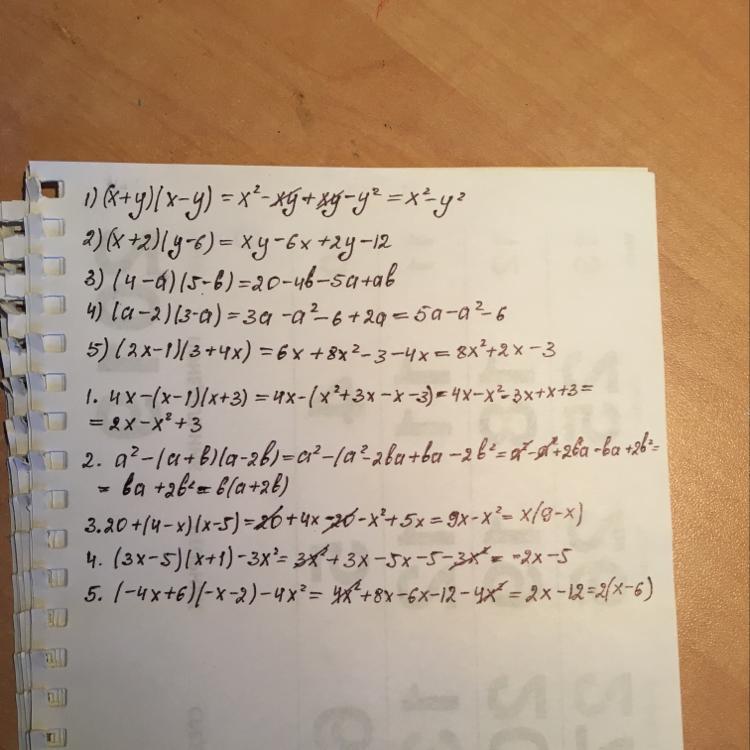 1) (x+y)(x-y) = x² - xy + xy - y² = x² - y²
2) (x+2)(y-6) = xy - 6x + 2y - 12
3) (4-a)(5-b) = 20 - 4b - 5a + ab
4) (a-2)(3-a) = 3a - a² - 6 + 2a = 5a - a² - 6
5) (2x-1)(3+4x) = 6x + 8x² - 3 - 4x = 8x² + 2x - 3
1. 4x - (x-1)(x+3) = 4x - (x² + 3x - x - 3) = 4x - x² - 3x + x + 3 =
= 2x - x² + 3
2. a² - (a+b)(a-2b) = a² - (a² - 2ba + ba - 2b² = a² - a² + 2ba - ba + 2b² =
= ba + 2b² = b(a+2b)
3. 20 + (4-x)(x-5) = 20 + 4x - 20 - x² + 5x = 9x - x² = x(9-x)
4. (3x-5)(x+1) - 3x² = 3x² + 3x - 5x - 5 - 3x² = -2x - 5
5. (-4x+6)(-x-2) - 4x² = 4x² + 8x - 6x - 12 - 4x² = 2x - 12 = 2(x-6)